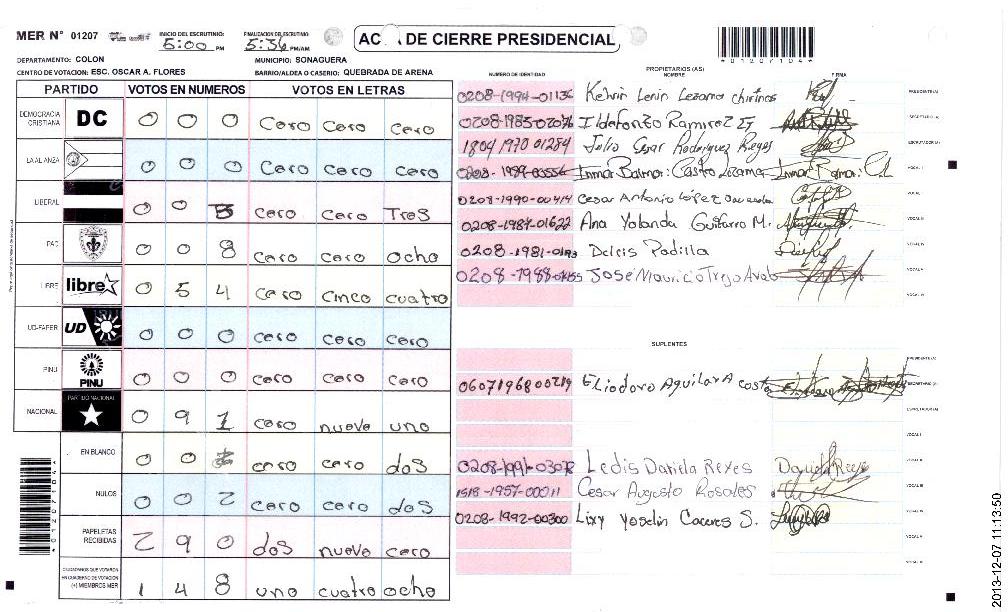 MER N° 01207
INICIO DEL ESCRUTINIO:
5:00 PM
FINALIZACION DEL ESCRUTINIO:
5:36 PM/AM
DE CIERRE PRESIDENCIAL
*01207104*
DEPARTAMENTO: COLON
MUNICIPIO: SONAGUERA
CENTRO DE VOTACION: ESC. OSCAR A. FLORES
BARRIO/ALDEA O CASERIO: QUEBRADA DE ARENA
PARTIDO VOTOS EN NUMEROS VOTOS EN LETRAS
DEMOCRACIA CRISTIANA DC 0 0 0 cero cero cero
LA ALIANZA 0 0 0 cero cero cero
LIBERAL 0 0 3 cero cero Tres
PAC 0 0 8 cero cero ocho
LIBRE libre 0 5 4 cero cinco cuatro
UD-FAPER UD 0 0 0 cero cero cero
PINU PINU 0 0 0 cero cero cero
NACIONAL PARTIDO NACIONAL 0 9 1 cero nueve uno
EN BLANCO 0 0 cero cero dos
NULOS 0 0 2 cero cero dos
PAPELETAS RECIBIDAS 2 9 0 dos nueve cero
CIUDADANOS QUE VOTARON EN CUADERNO DE VOTACION (+) MIEMBROS MER 1 4 8 uno cuatro ocho
*01207104*
NUMERO DE IDENTIDAD
PROPIETARIOS (AS)
NOMBRE
FIRMA
0208-1994-01136 Kelvin Lenin Lezama chirinos PRESIDENTE(A)
0208-1985-02076 Ildefonzo Ramirez SECRETARIO (A)
1804 1970 01284 Julio Cesar Rodriguez Reyes ESCRUTADOR (A)
0208-1989-03556 Inmar Balmori Castro Lezama VOCAL I
0208-1990-00414 Cesar Antonio López
0208-1987-01622 Ana Yolanda Guitarro M.
0208-1981-0193 Delcis Padilla
0208-1988 Jose Mauricio Trejo
SUPLENTES
PRESIDENTE (A)
0607196800219 Eliodoro Aguilar Acosta SECRETARIO (A)
ESCRUTADOR (A)
VOCAL I
0208-1991-0307 Ledis Dariela Reyes
1518-1957-00011 Cesar Augusto Rosales
0208-1992-00300 Lixy Yoselin Caceres S.
2013-12-07 11:13:50